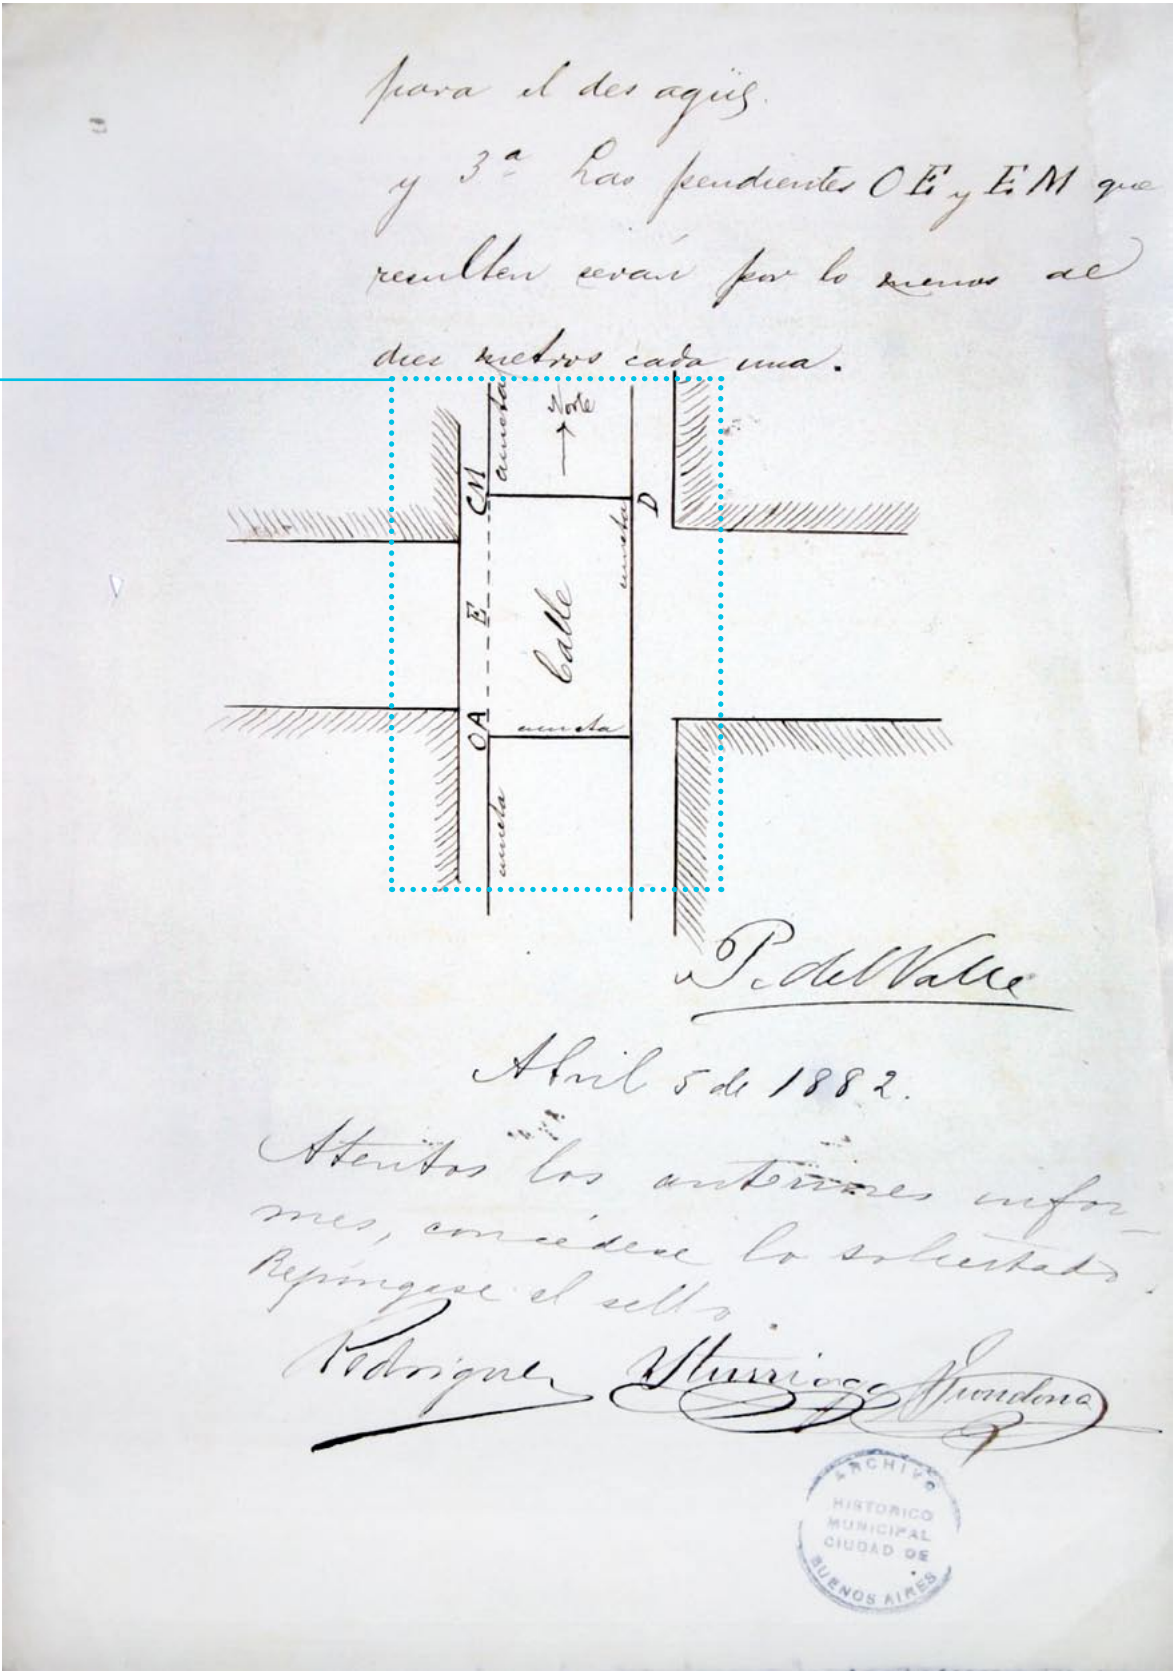 para el desagüe.
y 3ª Las pendientes O E y E M que
resulten serán por lo menos de
diez metros cada una.
Norte
cuneta
C M
D
cuneta
E
Calle
O A
cuneta
cuneta
P. del Valle
Abril 5 de 1882.
Atentos los anteriores infor-
mes, concédese lo solicitado.
Repóngase el sello.
Rodriguez Yturriaga
ARCHIVO
HISTORICO
MUNICIPAL
CIUDAD DE
BUENOS AIRES